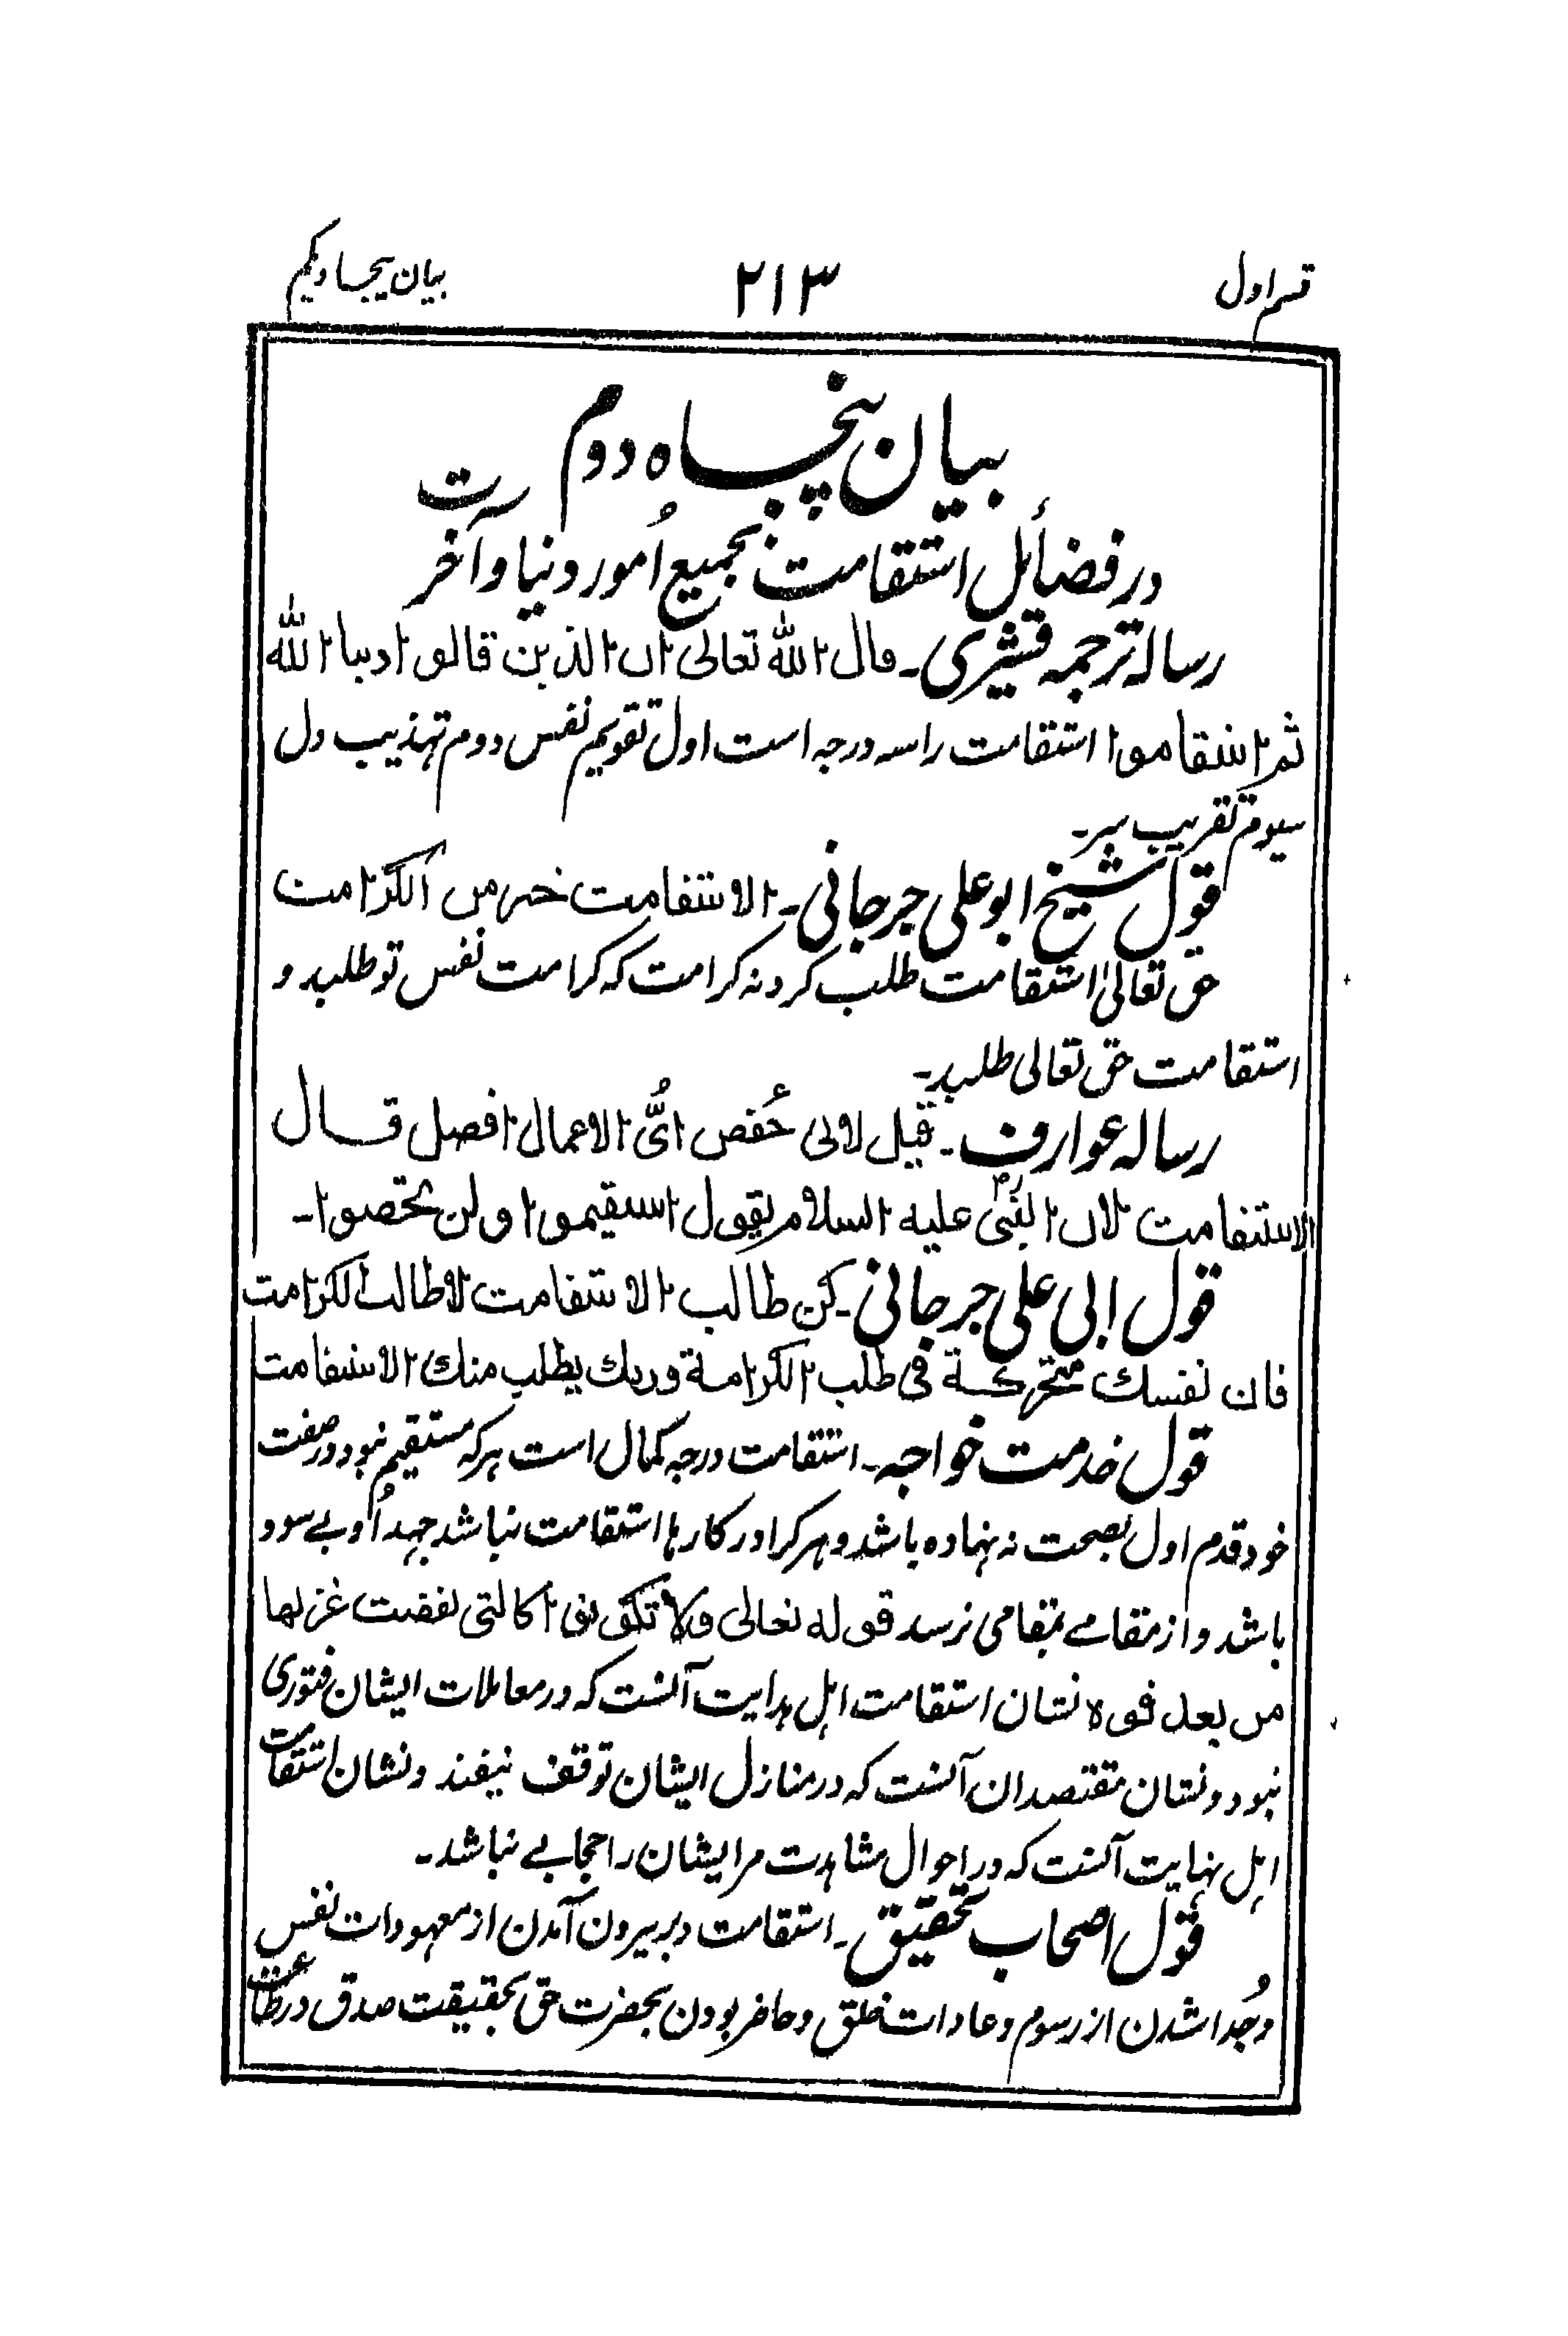 قسم اول ۲۱۳ بیان پنجاه ویکم
بیان پنجاه دوم
در فضائل استقامت بجمیع اُمور دنیا و آخرت
رساله ترجمه قشیری۔ قال الله تعالی ان الذین قالوا ربنا الله
ثم استقاموا استقامت را سه درجه است اول تقویم نفس دوم تهذیب دل
سیوم تقریب سر۔
قول شیخ ابو علی جرجانی۔ الاستقامت خیر من الکرامت
حق تعالیٰ استقامت طلب کرد نه کرامت که کرامت نفس تو طلبد و
استقامت حق تعالی طلبد۔
رساله عوارف۔ قیل لابی حُفص ایُّ الاعمال افضل قال
الاستقامت لان النبی علیه السلام یقول استقیموا و لن تحصوا۔
قول ابی علی جرجانی۔ کن طالب الاستقامت لا طالب الکرامت
فان نفسك متحركة فی طلب الکرامة وربك یطلب منك الاستقامت
قول خدمت خواجه۔ استقامت درجه کمال است هر که مستقیم نبود در صفت
خود قدم اول بصحت نه نهاده باشد و هر کرا در کارها استقامت نباشد جهد اُو بے سود
باشد و از مقامے بمقامی نرسد قوله تعالی ولا تکونوا کالتی نقضت غزلها
من بعد قوة نشان استقامت اهل بدایت آنست که در معاملات ایشان فتوری
نبود و نشان مقتصدان آنست که در منازل ایشان توقف نیفند و نشان استقامت
اهل نهایت آنست که در احوال مشاهدت مر ایشان را حجابے نباشد۔
قول اصحاب تحقیق۔ استقامت دبر بیرون آمدن از معهودات نفس
و جُدا شدن از رسوم و عادات خلق و حاضر بودن بحضرت حق بحقیقت صدق در